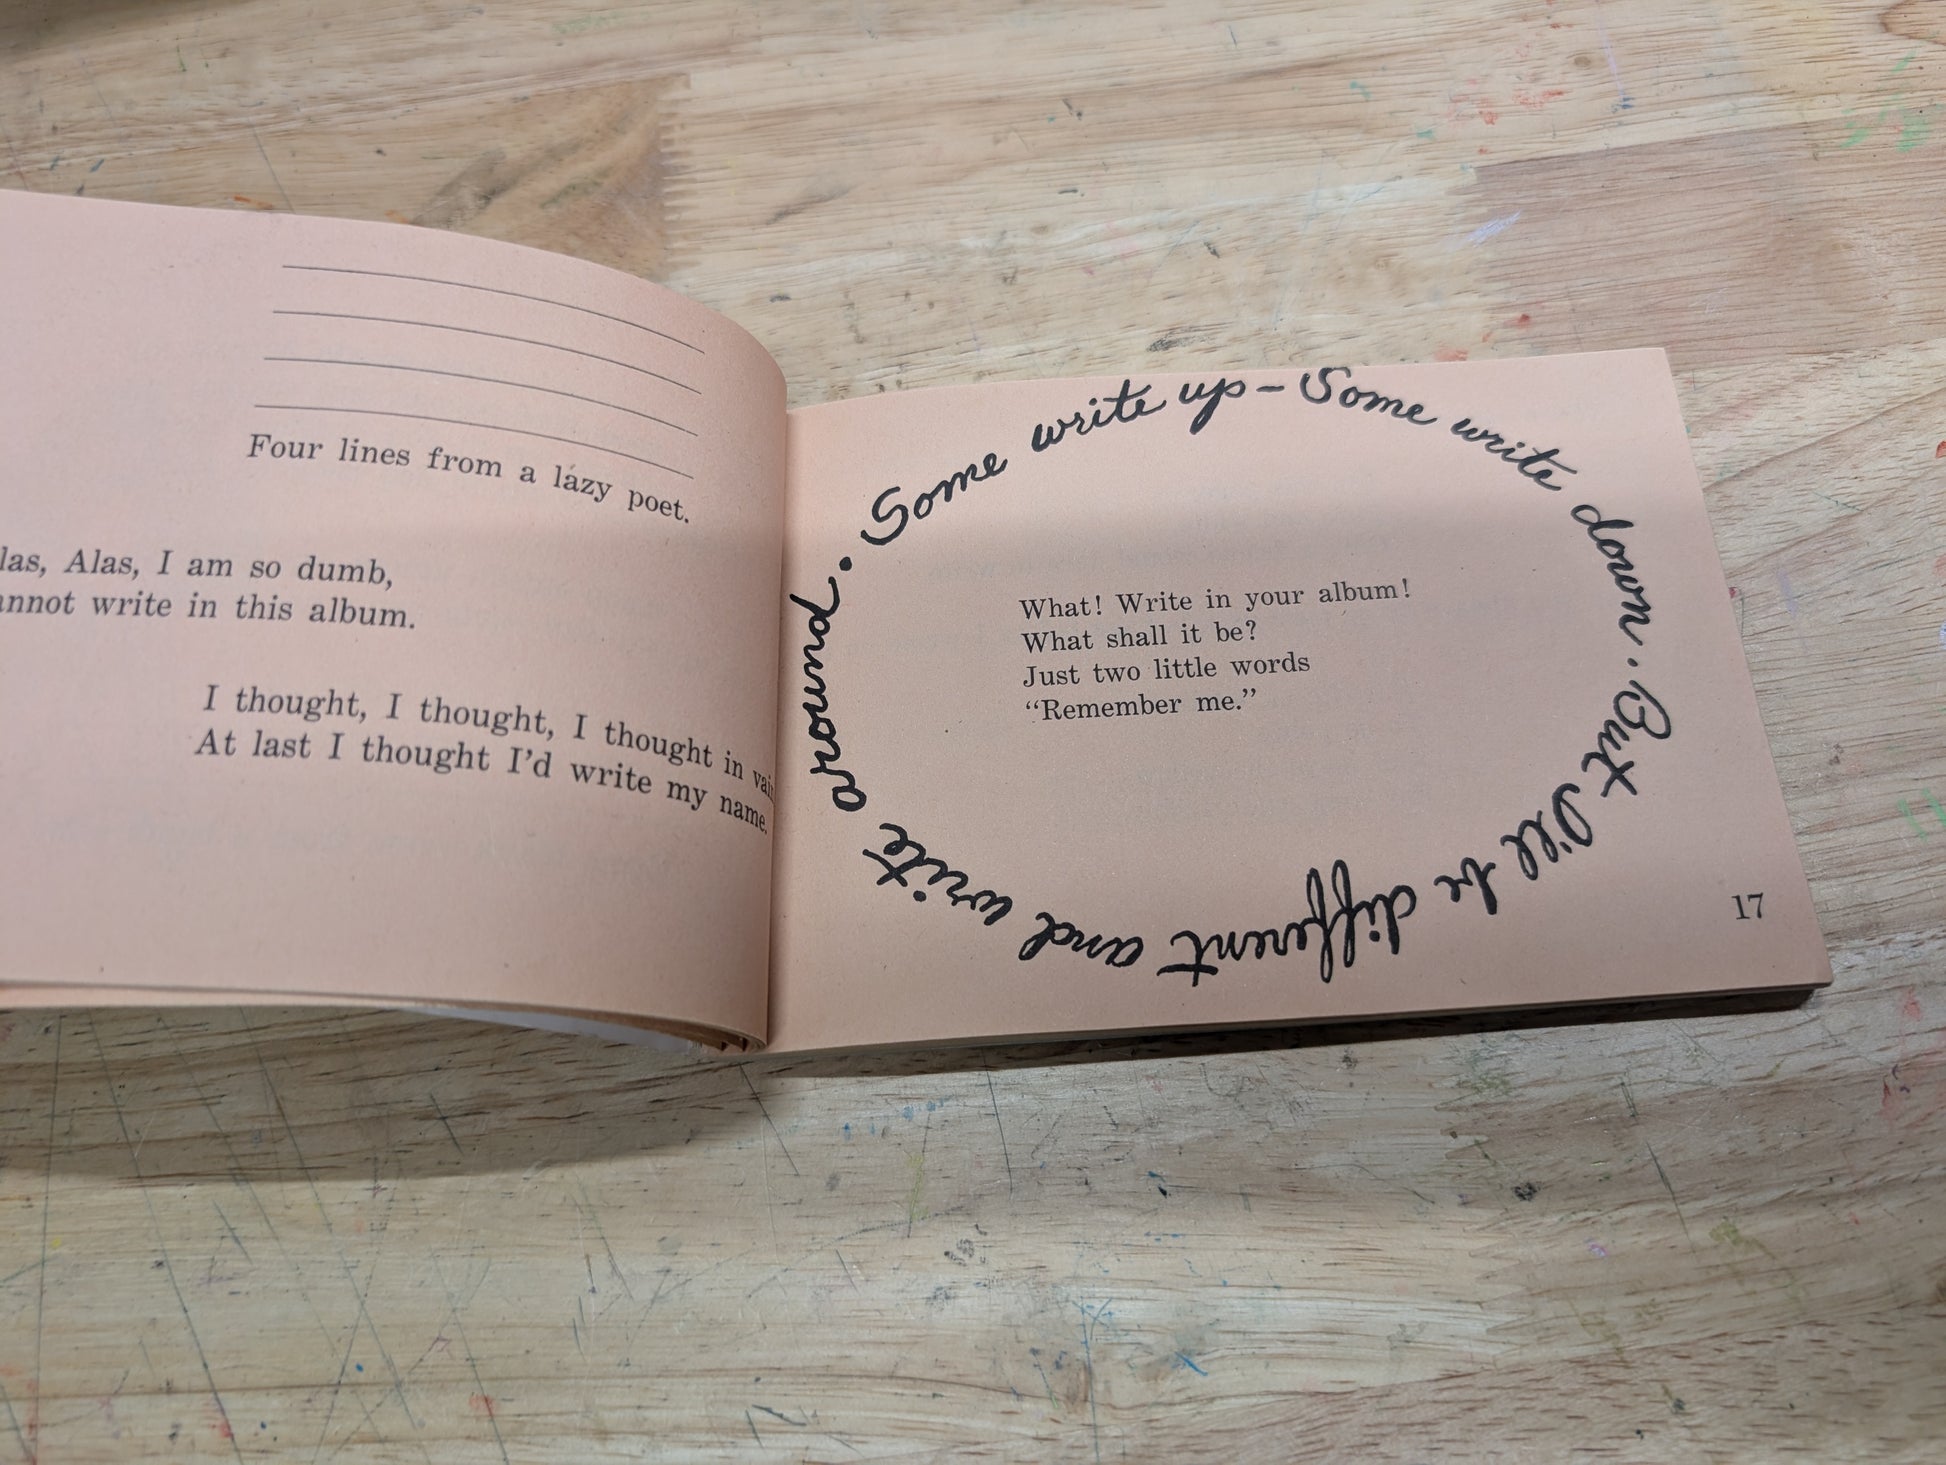 Four lines from a lazy poet.
las, Alas, I am so dumb,
annot write in this album.
I thought, I thought, I thought in vain
At last I thought I'd write my name.
Some write up - Some write down. But I'll be different and write around.
What! Write in your album!
What shall it be?
Just two little words
"Remember me."
17